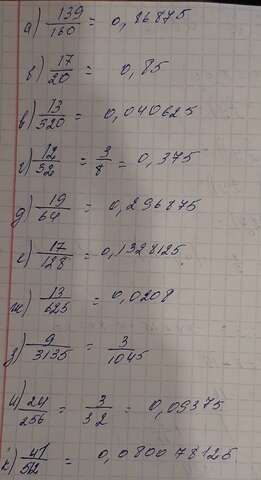 а) 139/160 = 0,86875
б) 17/20 = 0,85
в) 13/320 = 0,040625
г) 12/32 = 3/8 = 0,375
д) 19/64 = 0,296875
е) 17/128 = 0,1328125
ж) 13/625 = 0,0208
з) 9/3135 = 3/1045
и) 24/256 = 3/32 = 0,09375
к) 41/512 = 0,080078125